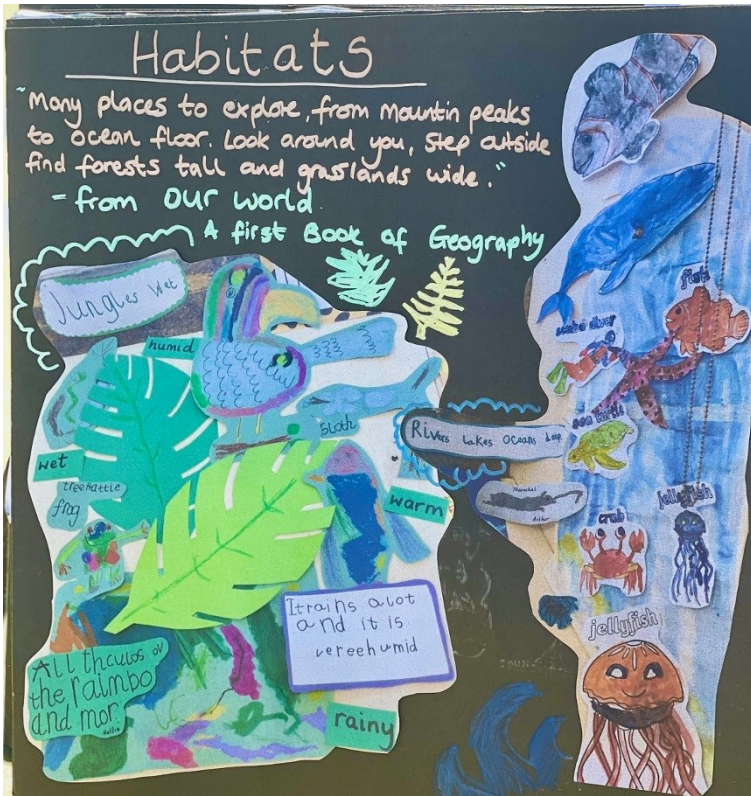 Habitats
"Many places to explore, from Mountin peaks
to ocean floor. Look around you, step outside
find forests tall and grasslands wide."
= from Our World
A first Book of Geography
Jungles Wet
humid
sloth
wet
treehattie
frog
warm
It rains alot
and it is
vereehumid
All thculos ov
the raimbo
and mor.
rainy
Rivers Lakes Oceans deep
fish
scuba diver
sea turtle
Narwhal
Arthur
crab
jellyfish
jellyfish